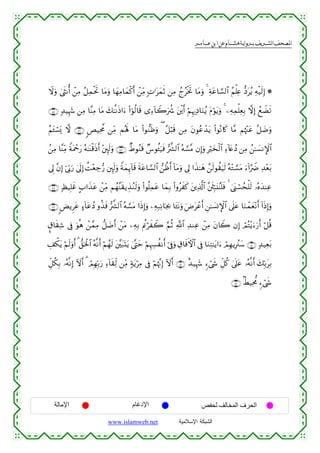 المصحف الشريف برواية هشام عن ابن عامر
* إِلَيْهِ يُرَدُّ عِلْمُ ٱلسَّاعَةِ ۚ وَمَا تَخْرُجُ مِن ثَمَرَٰتٍ مِّنْ أَكْمَامِهَا وَمَا تَحْمِلُ مِنْ أُنثَىٰ وَلَا
تَضَعُ إِلَّا بِعِلْمِهِۦ ۚ وَيَوْمَ يُنَادِيهِمْ أَيْنَ شُرَكَآءِى قَالُوٓا۟ ءَاذَنَّـٰكَ مَا مِنَّا مِن شَهِيدٍ
وَضَلَّ عَنْهُم مَّا كَانُوا۟ يَدْعُونَ مِن قَبْلُ ۖ وَظَنُّوا۟ مَا لَهُم مِّن مَّحِيصٍ لَّا يَسْـَٔمُ
ٱلْإِنسَـٰنُ مِن دُعَآءِ ٱلْخَيْرِ وَإِن مَّسَّهُ ٱلشَّرُّ فَيَـُٔوسٌ قَنُوطٌ وَلَئِنْ أَذَقْنَـٰهُ رَحْمَةً مِّنَّا مِنۢ
بَعْدِ ضَرَّآءَ مَسَّتْهُ لَيَقُولَنَّ هَـٰذَا لِى وَمَآ أَظُنُّ ٱلسَّاعَةَ قَآئِمَةً وَلَئِن رُّجِعْتُ إِلَىٰ رَبِّىٓ إِنَّ لِى
عِندَهُۥ لَلْحُسْنَىٰ ۚ فَلَنُنَبِّئَنَّ ٱلَّذِينَ كَفَرُوا۟ بِمَا عَمِلُوا۟ وَلَنُذِيقَنَّهُم مِّنْ عَذَابٍ غَلِيظٍ
وَإِذَآ أَنْعَمْنَا عَلَى ٱلْإِنسَـٰنِ أَعْرَضَ وَنَـَٔا بِجَانِبِهِۦ وَإِذَا مَسَّهُ ٱلشَّرُّ فَذُو دُعَآءٍ عَرِيضٍ
قُلْ أَرَءَيْتُمْ إِن كَانَ مِنْ عِندِ ٱللَّهِ ثُمَّ كَفَرْتُم بِهِۦ مَنْ أَضَلُّ مِمَّنْ هُوَ فِى شِقَاقٍۭ
بَعِيدٍ سَنُرِيهِمْ ءَايَـٰتِنَا فِى ٱلْـَٔافَاقِ وَفِىٓ أَنفُسِهِمْ حَتَّىٰ يَتَبَيَّنَ لَهُمْ أَنَّهُ ٱلْحَقُّ ۗ أَوَلَمْ يَكْفِ
بِرَبِّكَ أَنَّهُۥ عَلَىٰ كُلِّ شَىْءٍ شَهِيدٌ أَلَآ إِنَّهُمْ فِى مِرْيَةٍ مِّن لِّقَآءِ رَبِّهِمْ ۗ أَلَآ إِنَّهُۥ بِكُلِّ
شَىْءٍ مُّحِيطٌۢ
الحرف المخالف لحفص الإدغام الإمالة
الشبكة الإسلامية www.islamweb.net